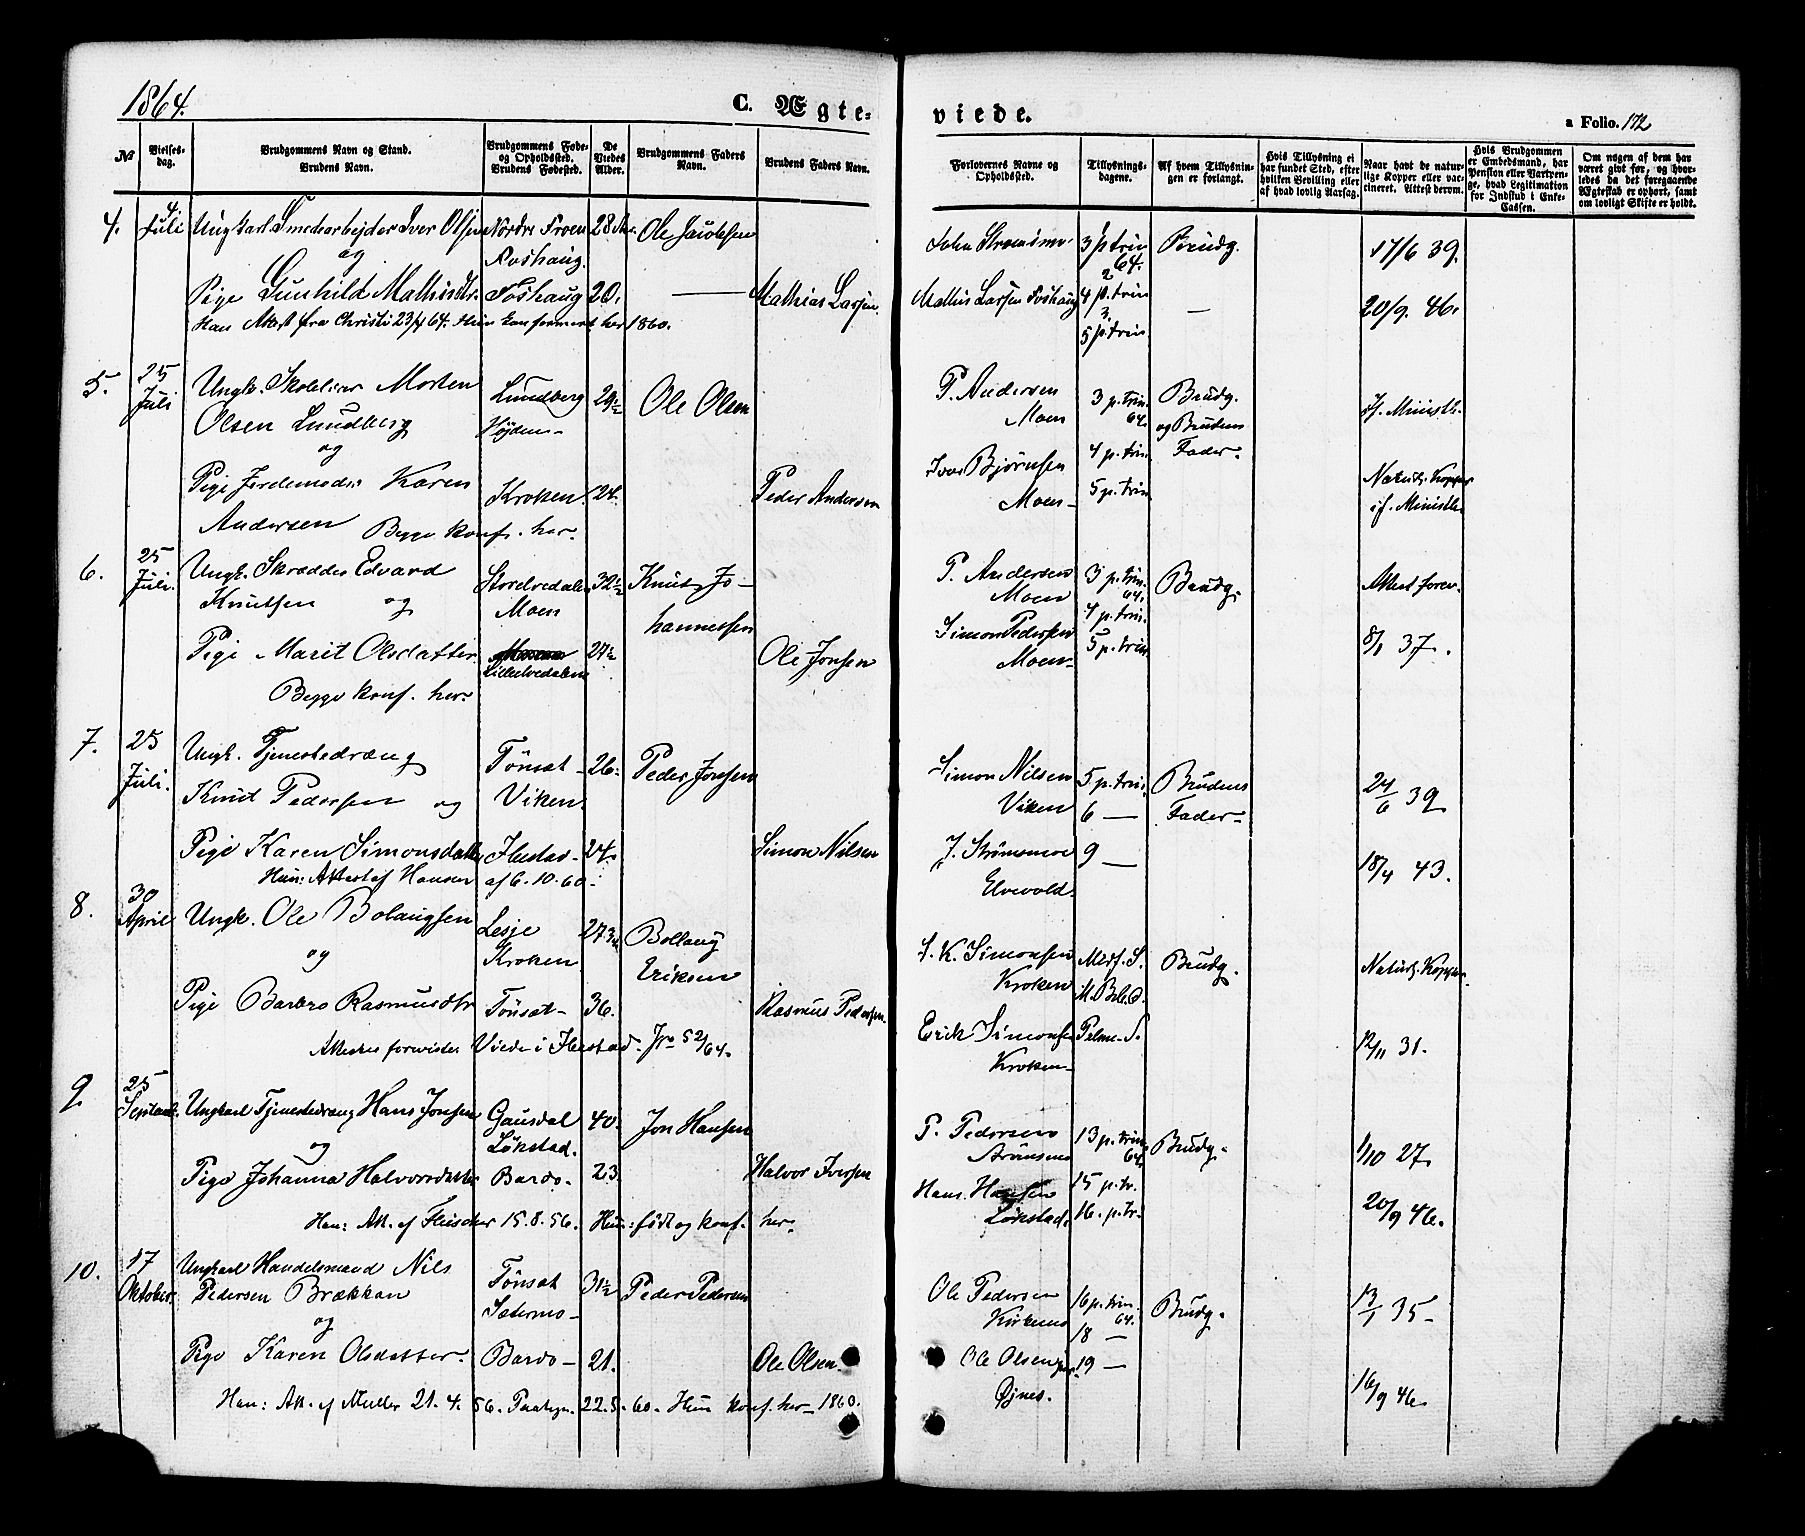 1864.
C. Ægte-
viede.
a Folio. 172
No
Vielses-
dag.
Brudgommens Navn og Stand.
Brudens Navn.
Brudgommens Føde-
og Opholdssted.
Brudens Fødested.
De
Viedes
Alder.
Brudgommens Faders
Navn.
Brudens Faders Navn.
Forlovernes Navne og
Opholdssted.
Tillysnings-
dagene.
Af hvem Tillysnin-
gen er forlangt.
Hvis Tillysning ei
har fundet Sted, efter
hvilken Bevilling eller
af hvad lovlig Aarsag.
Naar havt de natur-
lige Kopper eller vac-
cineret. Attest derom.
Hvis Brudgommen
er Embedsmand, har
Pension eller Vartpen-
ge, hvad Legitimation
for Indskud i Enke-
Cassen.
Om nogen af dem har
været gift før, og hvor-
ledes da det foregaaende
Ægteskab er ophørt, samt
om lovligt Skifte er holdt.
4. 4 Juli Ungkarl Smedearbejder Iver Olsen Nordre Froen 28 Ole Jacobsen
og Foshaug.
Pige Gunhild Mathisdtr. Foshaug 20. — Mathias Larsen
Han Attest fra Christi 23/4 64. Hun konfirmeret her 1860.
John Strømsmo 3 p. trin 64. Brudg. 17/6 39.
Mathis Larsen Foshaug 4 p. trin — 20/9. 46.
5 p. trin
5. 25 Juli Ungk. Skolelærer Morten Lundberg 29 1/2 Ole Olsen
Olsen Lundberg
og
Pige Jordemoder Karen Kroken 24. Peder Andersen
Andersen Begge konf. her.
P. Andersen 3 p. trin 64. Brudg. if. Ministb.
Moen og Brudens
Iver Bjørnsen 4 p. trin Fader. Naturl. Kopper
Moen 5 p. trin if. Ministb.
6. 25 Juli. Ungk. Skrædder Edvard Storelvedalen 32 1/2 Knut Jo-
Knutsen og Moen hannessen
Pige Marit Olsdatter Lilleelvedalen 27 1/2 Ole Jonsen
Begge konf. her.
P. Andersen 3 p. trin 64. Brudg. Attest forev.
Moen 4 p. trin.
Simon Pedersen 5 p. trin 8/1 37.
Moen
7. 25 Juli. Ungk. Tjenestedreng Tönset 26. Peder Jonsen
Knut Pedersen og Viken.
Pige Karen Simonsdatter Flestad 24. Simon Nilsen
Hun: Attest af Hansen af 6. 10. 60.
Simon Nilsen 5 p. trin. Brudens 24/6 39
Viken 6 — Fader
J. Strömsmoe 9 — 18/4 43.
Elvevold.
8. 30 April Ungk. Ole Bolaugsen Lesje 27 3/4 Bollaug
og Kroken Eriksen
Pige Barbro Rasmusdtr Tönset 36. Rasmus Pedersen
Attester forevister Viede i Flestad. Jrn 52/64.
S. K. Simonsen Brudg. Naturl. Kopper.
Kroken
Erik Simonsen Palme. S. 12/11 31.
Kroken
9 25 Septemb. Ungkarl Tjenestedreng Hans Jonsen Gausdal 40. Jon Hansen
og Løkstad.
Pige Johanna Halvorsdatter Bardo. 23. Halvor Iversen
Han: Att. af Fleischer 15. 8. 56. Hun: født og konf. her.
P. Pedersen 13 p. trin 64. Brudg. 1/10 27.
Hans Hansen 15 p. tr. 20/9 46.
Løkstad. 16. p. tr.
10. 17 Oktober. Ungkarl Handelsmand Nils Tönset 31 1/2 Peder Pedersen
Pedersen Brækken Sætermo
og
Pige Karen Olsdatter. Bardo 21. Ole Olsen.
Han: Att. af Muller 21. 4. 56. 22. 5. 60. Hun konf. her 1860.
Ole Pedersen 16 p. trin. 64. Brudg. 13/1 35
Kirkemo 18 —
Ole Olsen 19 — 16/9 46.
Øjnes.